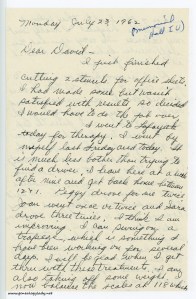 Monday July 23, 1962
Dear David—
I just finished
cutting 2 stencils for office shots,
I had made some but wasn't
satisfied with results, so decided
I would have to do the job over
I went to Lafayette
today for therapy, I went by
myself last Friday and today. It
is much less bother than trying to
find a driver, I leave here at a
after nine and get back here between
12 & 1. Peggy drove me twice
Joan went once or twice and Sara
drove three times, I think I am
improving. I can swing on a
trapeze, which is something
have been working on for several
days. I will be glad when I get
thru with this treatment, I am
also taking off some weight
now balance the scales at 118 when